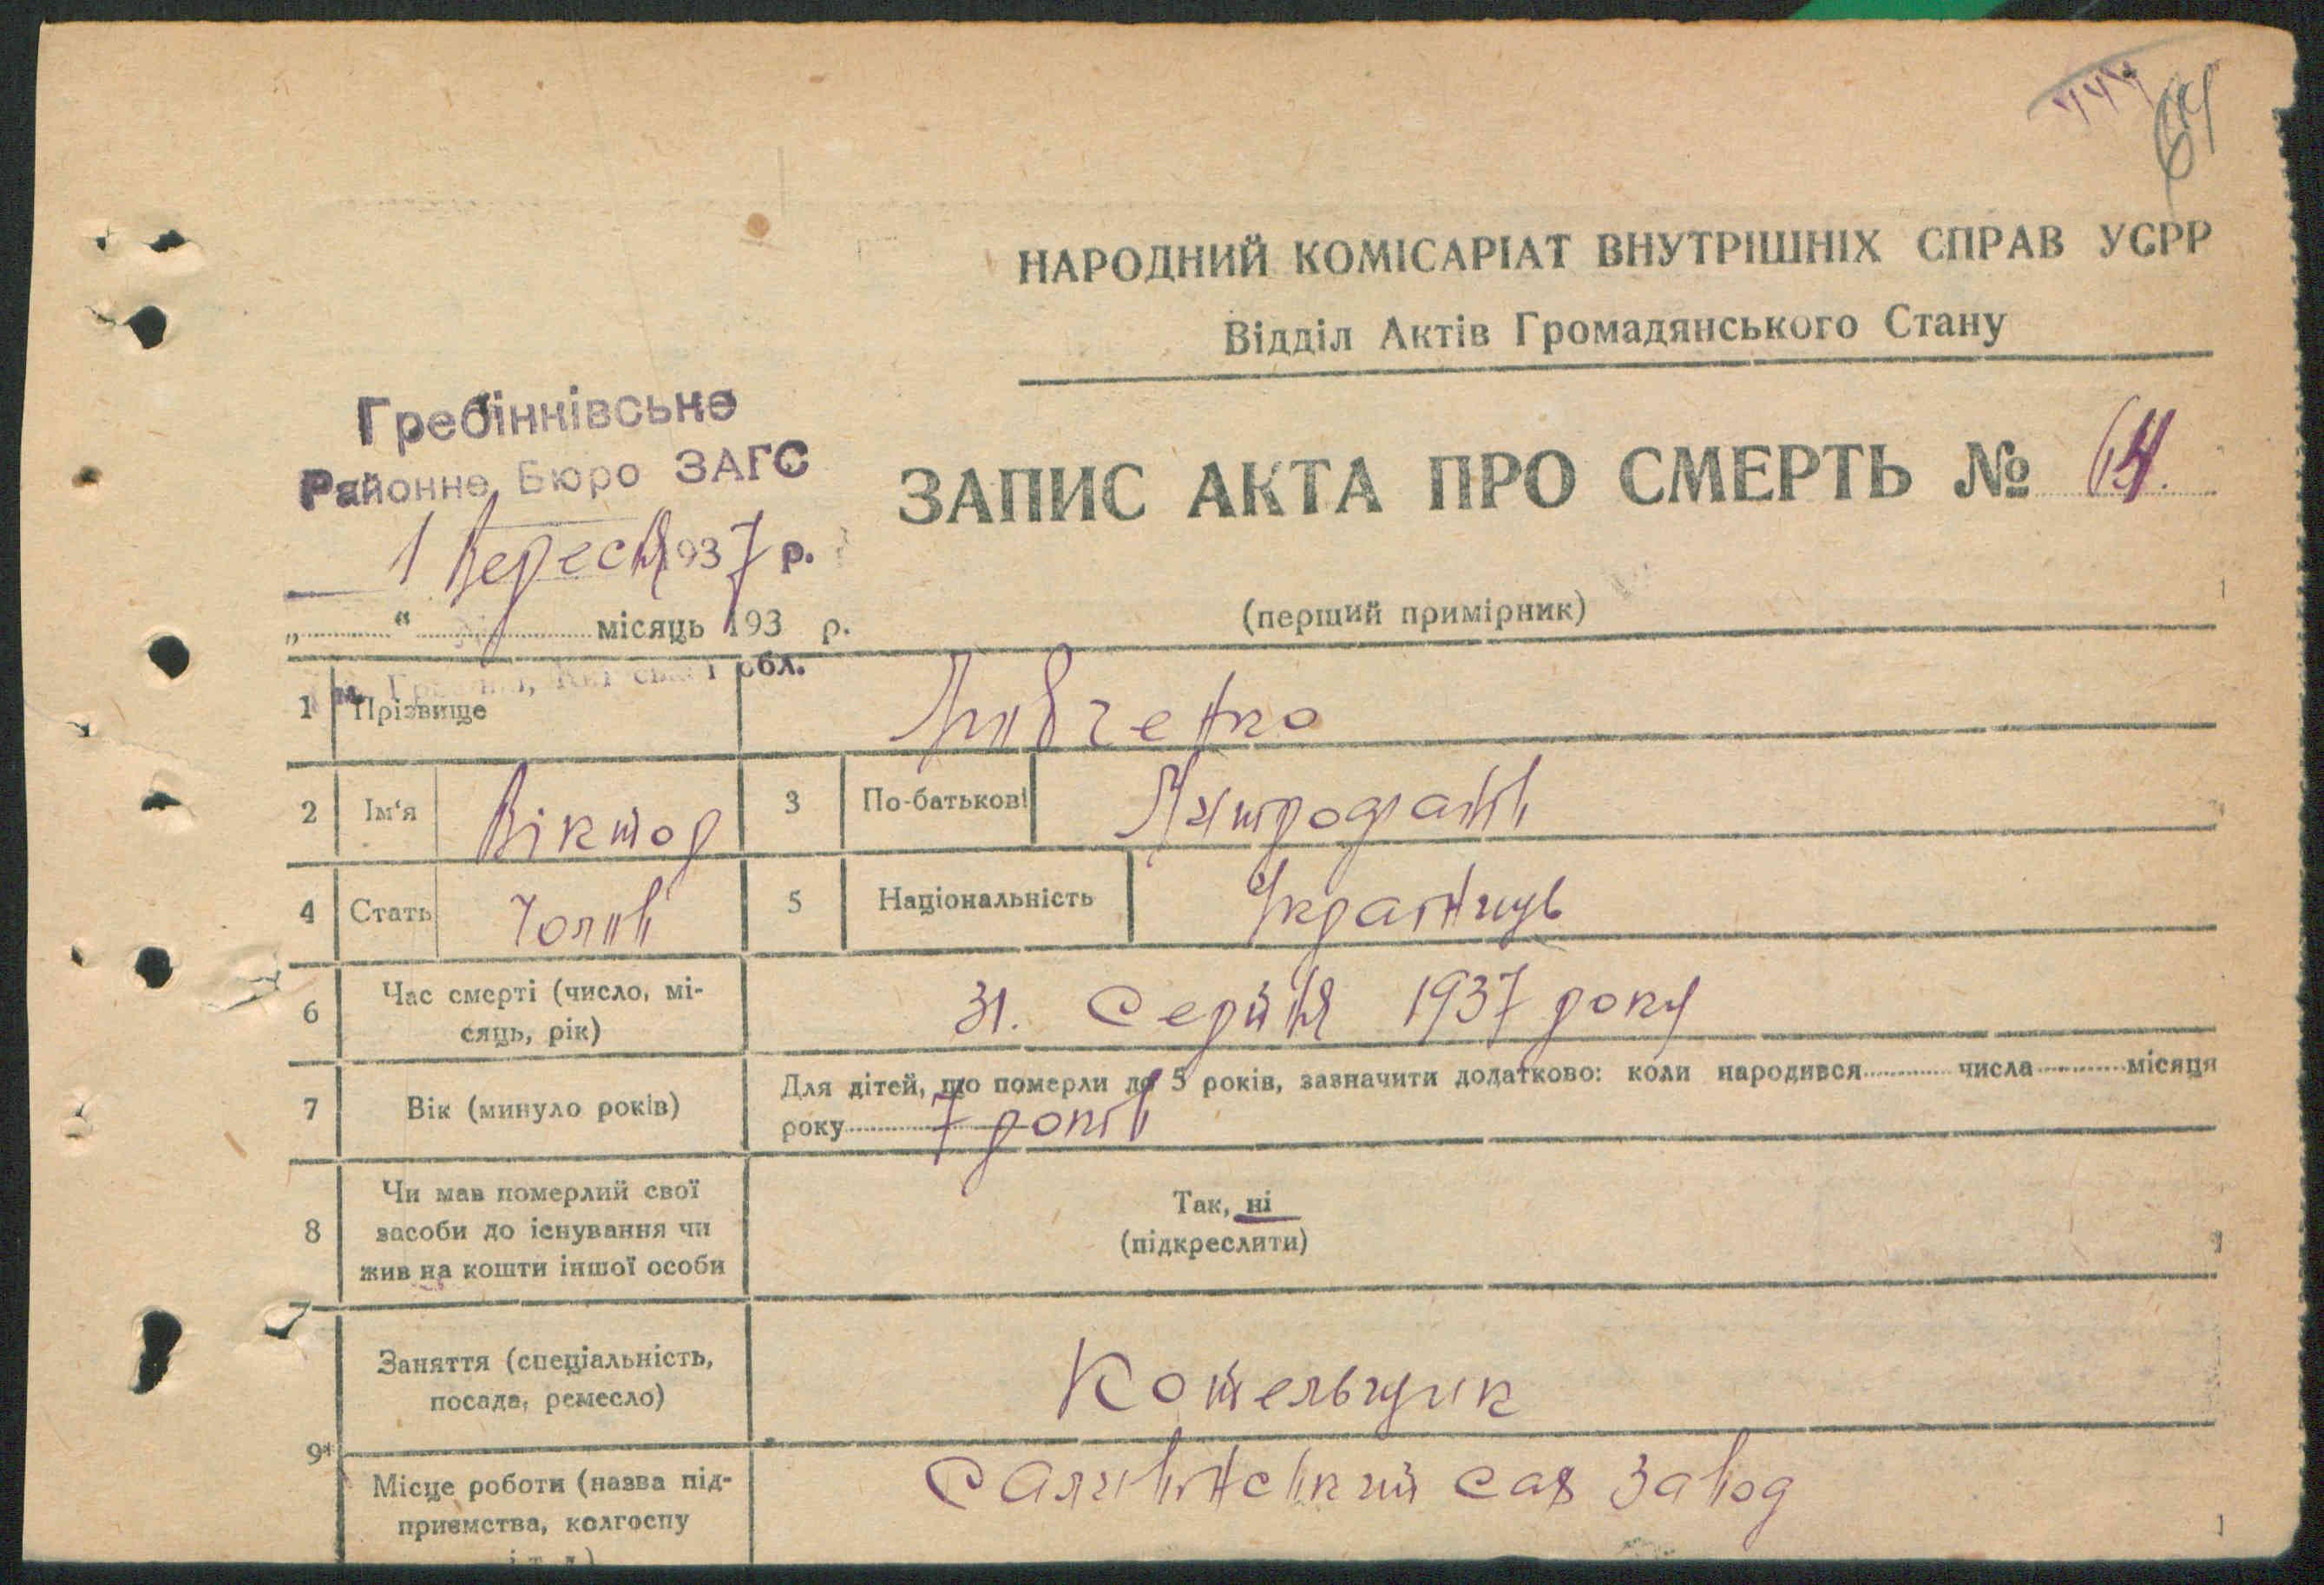 64
НАРОДНИЙ КОМІСАРІАТ ВНУТРІШНІХ СПРАВ УСРР
Відділ Актів Громадянського Стану
Гребінківське
Районне Бюро ЗАГС
1 Вересня 1937 р.
ЗАПИС АКТА ПРО СМЕРТЬ № 64.
(перший примірник)
„ “ місяць 193 р.
обл.
1 Прізвище
2 Ім‘я Віктор 3 По-батькові Митрофан
4 Стать Чолов 5 Національність Українець
6 Час смерті (число, мі-
сяць, рік) 31. Серпня 1937 року
7 Вік (минуло років) Для дітей, що померли до 5 років, зазначити додатково: коли народився числа місяця
року 7 років
8 Чи мав померлий свої
засоби до існування чи
жив на кошти іншої особи
Так, ні
(підкреслити)
9 Заняття (спеціальність,
посада, ремесло) Котельщик
Місце роботи (назва під-
приємства, колгоспу
і т. д.) Саливонський сах завод